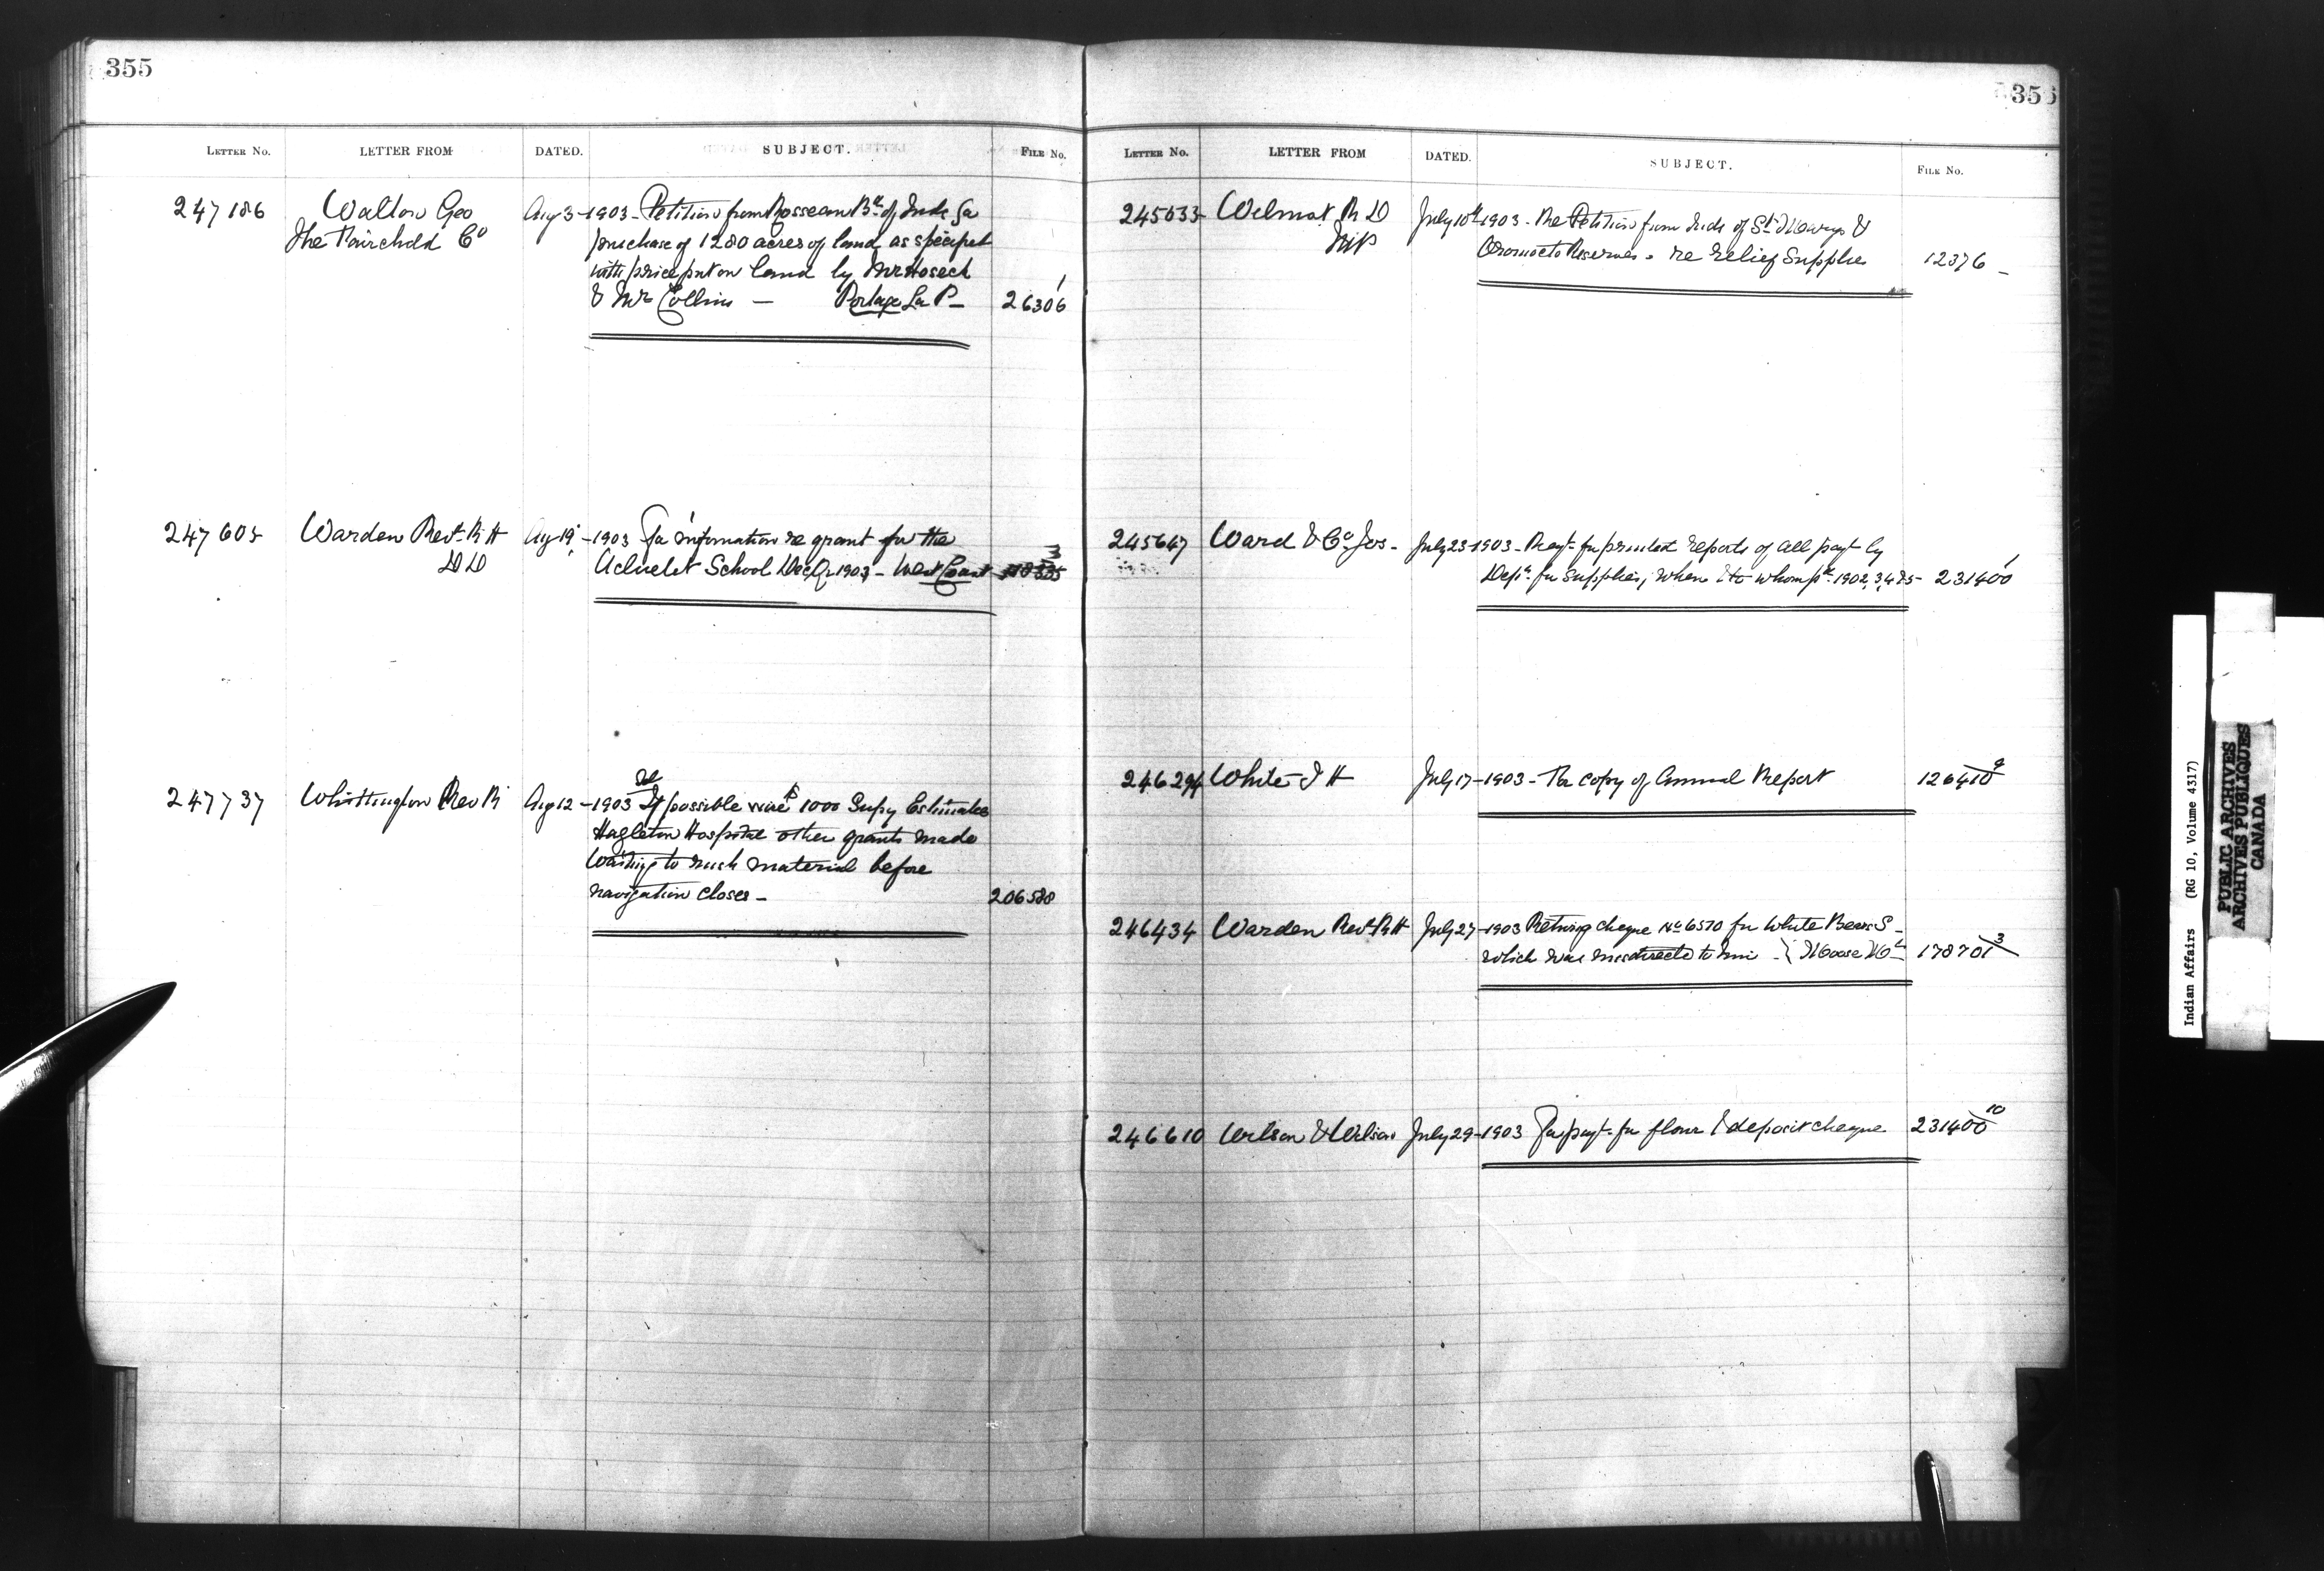 355
LETTER NO. LETTER FROM DATED. SUBJECT. FILE NO.
247186 Walton Geo Aug 3 - 1903 - Petition from Rosseau Bd of Inds for
The Fairchild Co purchase of 1280 acres of land as specified
with price put on land by Mr Hosech
& Mr Collins — Portage La P — 26306 1
247605 Warden Revd R H Aug 19 - 1903 For information re grant for the
D D Ucluelet School Dec Qr 1903 - West Coast
247737 Whittington Rev R Aug 12 - 1903 Tel If possible wire $ 1000 Supy Estimates
Hazleton Hospital other grants made
Waiting to rush material before
navigation closes - 206588
356
LETTER NO. LETTER FROM DATED. SUBJECT. FILE NO.
245633 Wilmot R D July 10th 1903 - Re Petition from Inds of St Marys &
MP Oromocto Reserves - re relief supplies 12376 -
245647 Ward & Co Jos - July 23 - 1903 - Reqt for printed reports of all payt by
Dept for supplies, when & to whom pd 1902, 3, 4 & 5 - 231400 1
246294 White J H July 17 - 1903 - For copy of Annual Report 126410 9
246434 Warden Revd R H July 27 - 1903 Returning cheque No 6570 for White Bears S -
which was misdirected to him - Moose Mn 178701 3
246610 Wilson & Wilson July 29 - 1903 For payt for flour & deposit cheque 231400 10
Indian Affairs (RG 10, Volume 4317)
PUBLIC ARCHIVES
ARCHIVES PUBLIQUES
CANADA